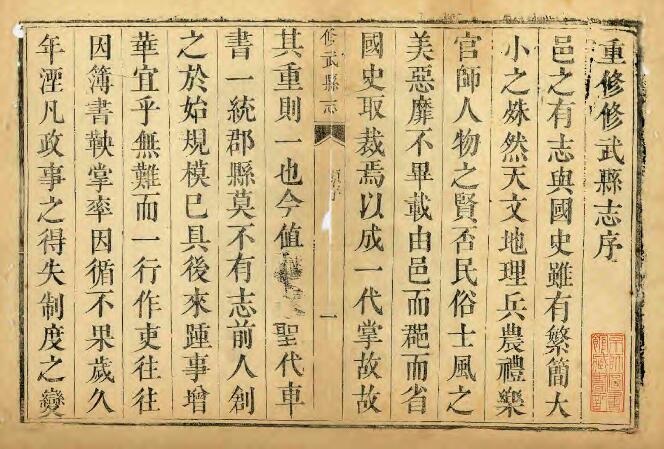 重修修武縣志序
邑之有志與國史雖有繁簡大
小之殊然天文地理兵農禮樂
官師人物之賢否民俗士風之
美惡靡不畢載由邑而郡而省
國史取裁焉以成一代掌故故
修武縣志
序
一
其重則一也今值 聖代車
書一統郡縣莫不有志前人創
之於始規模已具後來踵事增
華宜乎無難而一行作吏往往
因簿書鞅掌率因循不果歲久
年湮凡政事之得失制度之變